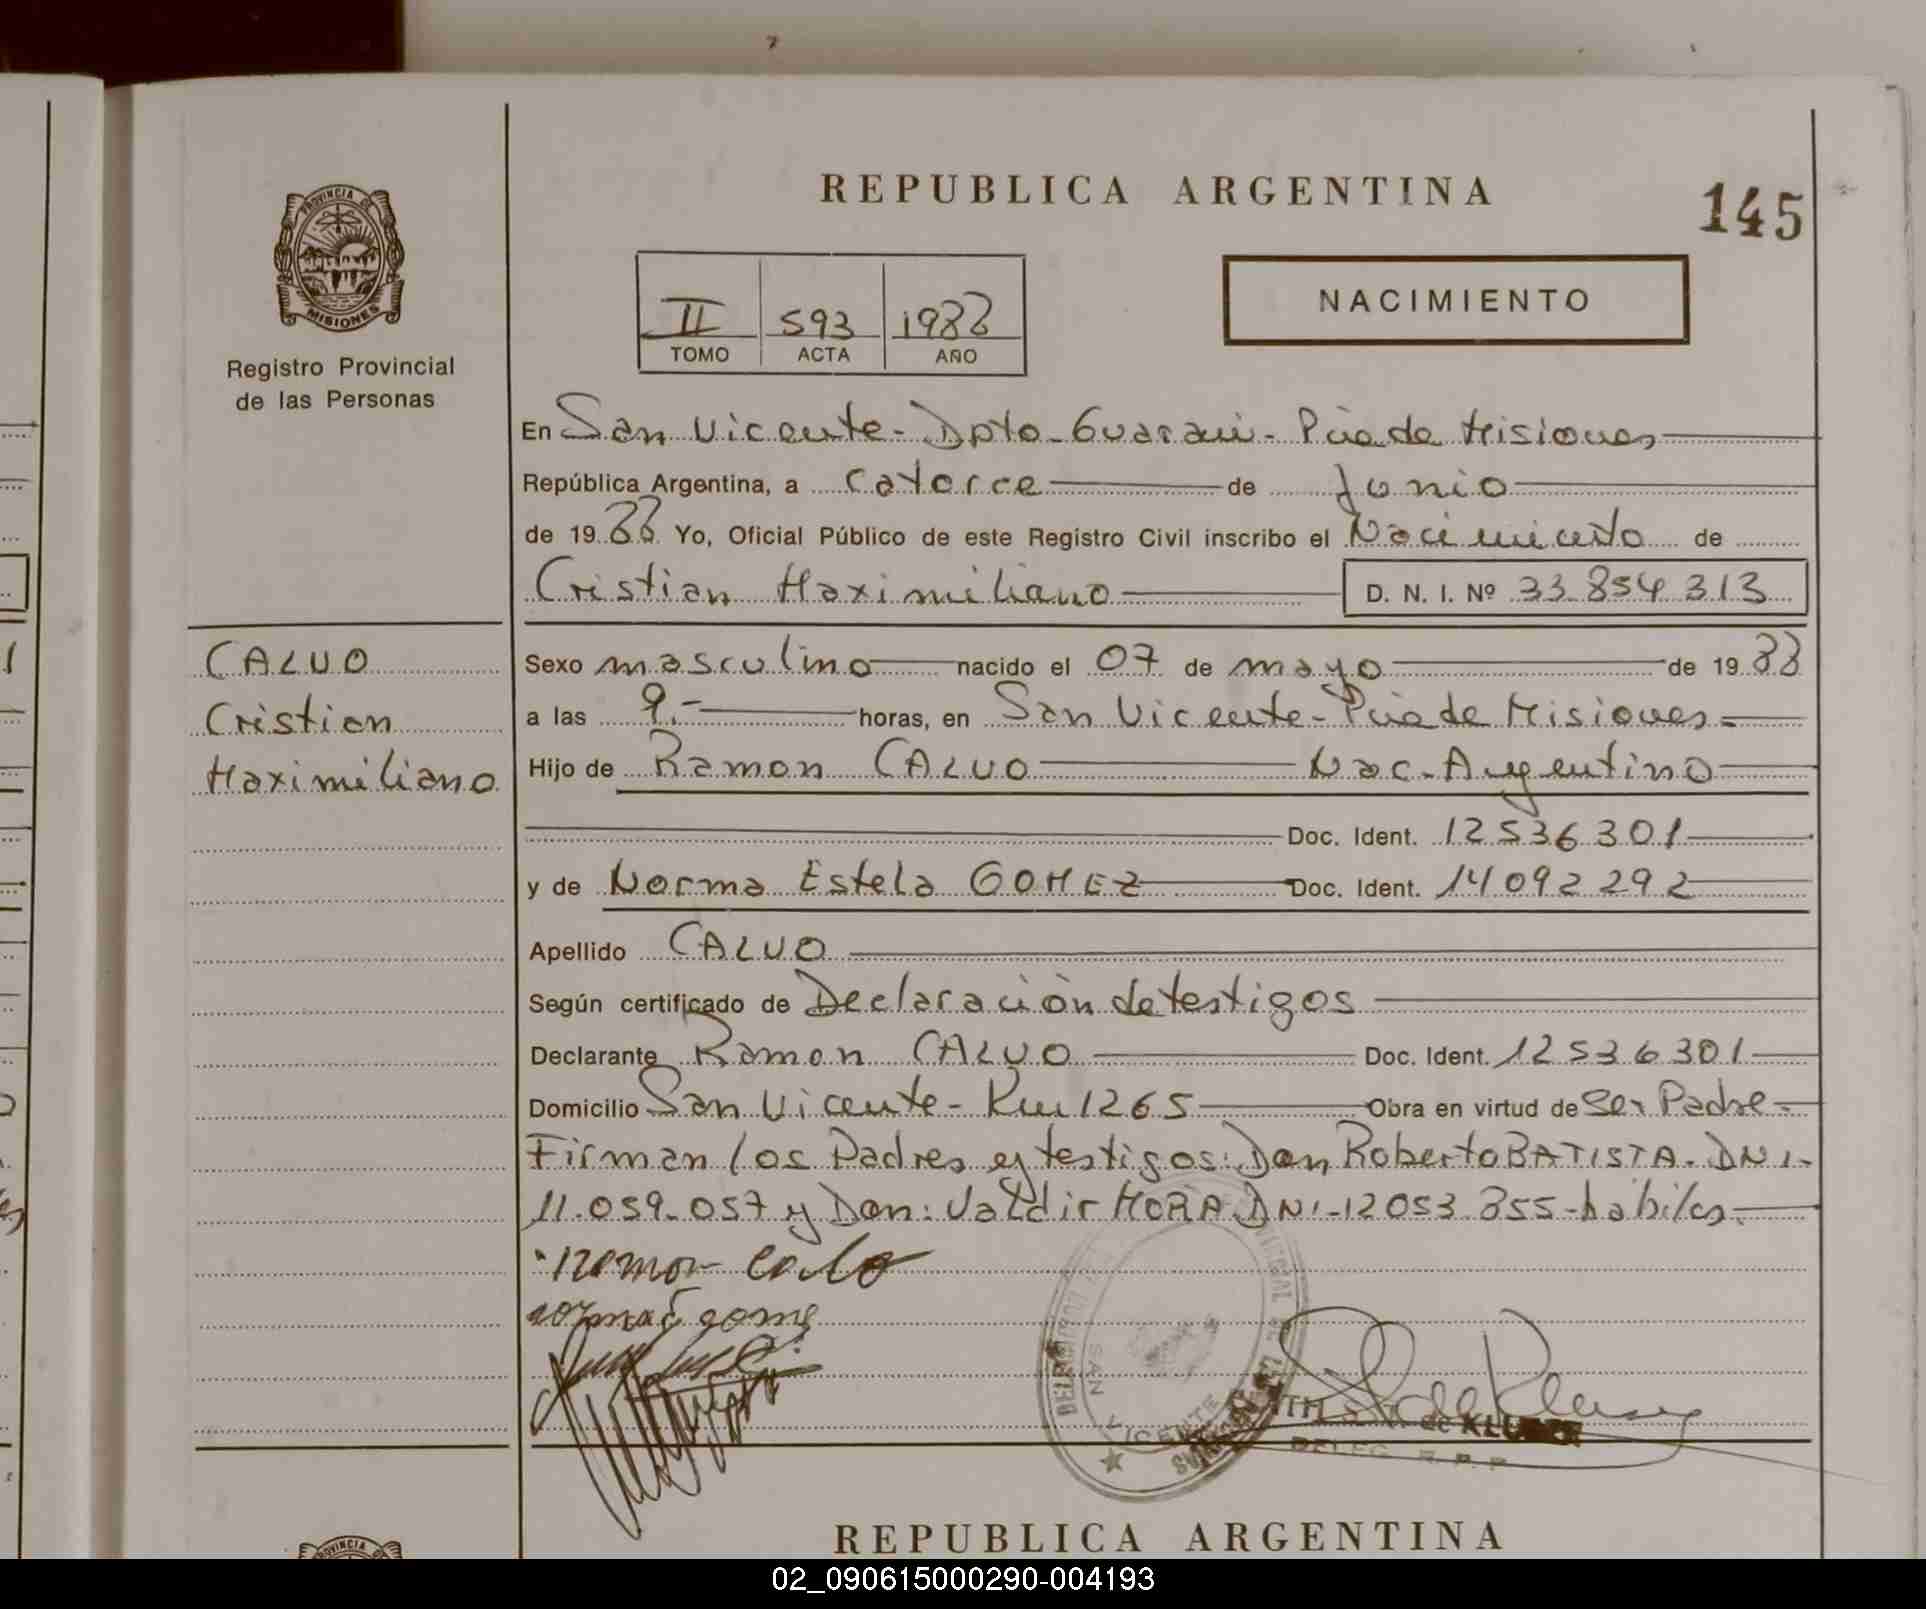 PROVINCIA DE
MISIONES
Registro Provincial
de las Personas
REPUBLICA ARGENTINA
145
II 593 1988
TOMO ACTA AÑO
NACIMIENTO
En San Vicente - Dpto - Guarani - Pcia de Misiones
República Argentina, a catorce de Junio
de 1988 Yo, Oficial Público de este Registro Civil inscribo el Nacimiento de
Cristian Maximiliano D. N. I. Nº 33.854.313
CALVO
Cristian
Maximiliano
Sexo masculino nacido el 07 de mayo de 1988
a las 9.- horas, en San Vicente - Pcia de Misiones -
Hijo de Ramon CALVO Nac. Argentino
Doc. Ident. 12536301
y de Norma Estela GOMEZ Doc. Ident. 14092292
Apellido CALVO
Según certificado de Declaración de testigos
Declarante Ramon CALVO Doc. Ident. 12536301
Domicilio San Vicente - Km 1265 Obra en virtud de Ser Padre -
Firman los Padres y testigos: Don Roberto BATISTA. DNI-
11.059.057 y Don: Valdir MORA. DNI-12053.855-habiles.
Ramon Calvo
norma E gome
SAN VICENTE
de KLU
DELEG. R. P. P
REPUBLICA ARGENTINA
PROVINCIA
02_090615000290-004193